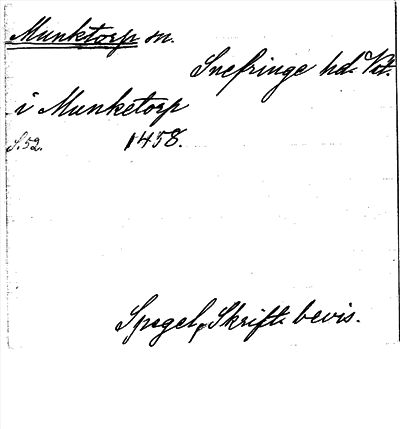 Munktorp sn.
Snefringe hd. Vstt.
i Munketorp
S. 52. 1458.
Spegel, Skrift. bevis.